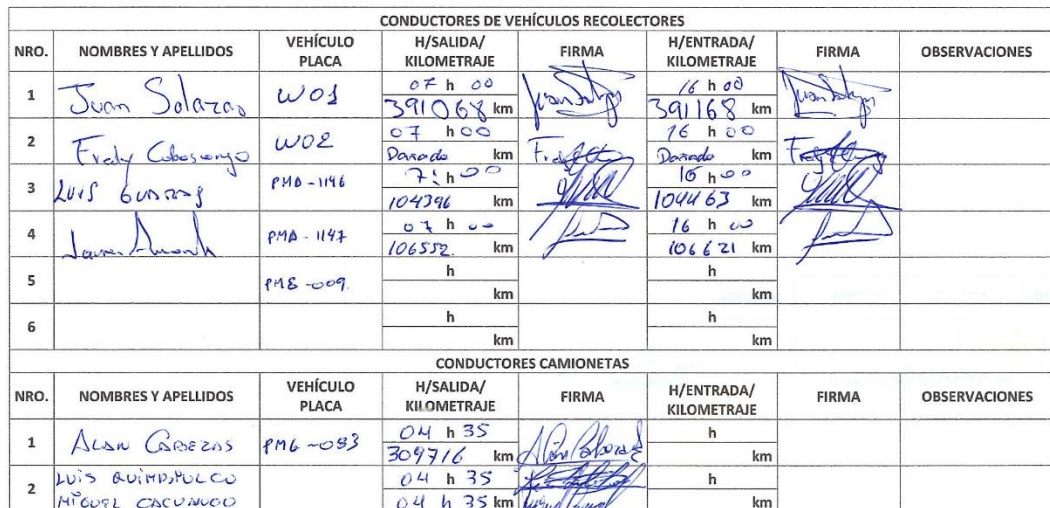 CONDUCTORES DE VEHÍCULOS RECOLECTORES
NRO. NOMBRES Y APELLIDOS VEHÍCULO PLACA H/SALIDA/ KILOMETRAJE FIRMA H/ENTRADA/ KILOMETRAJE FIRMA OBSERVACIONES
1 Juan Salazar W01 07 h 00 16 h 00
391068 km 391168 km
2 Fredy W02 07 h 00 16 h 00
Danado km Danado km
3 LUIS PMA-1146 7: h 00 16 h 00
104396 km 104463 km
4 PMA-1147 07 h 00 16 h 00
106552 km 106621 km
5 PME-009 h h
km km
6 h h
km km
CONDUCTORES CAMIONETAS
NRO. NOMBRES Y APELLIDOS VEHÍCULO PLACA H/SALIDA/ KILOMETRAJE FIRMA H/ENTRADA/ KILOMETRAJE FIRMA OBSERVACIONES
1 ALAN CABEZAS 04 h 35 h
309716 km km
2 LUIS 04 h 35 h
MIGUEL 04 h 35 km km